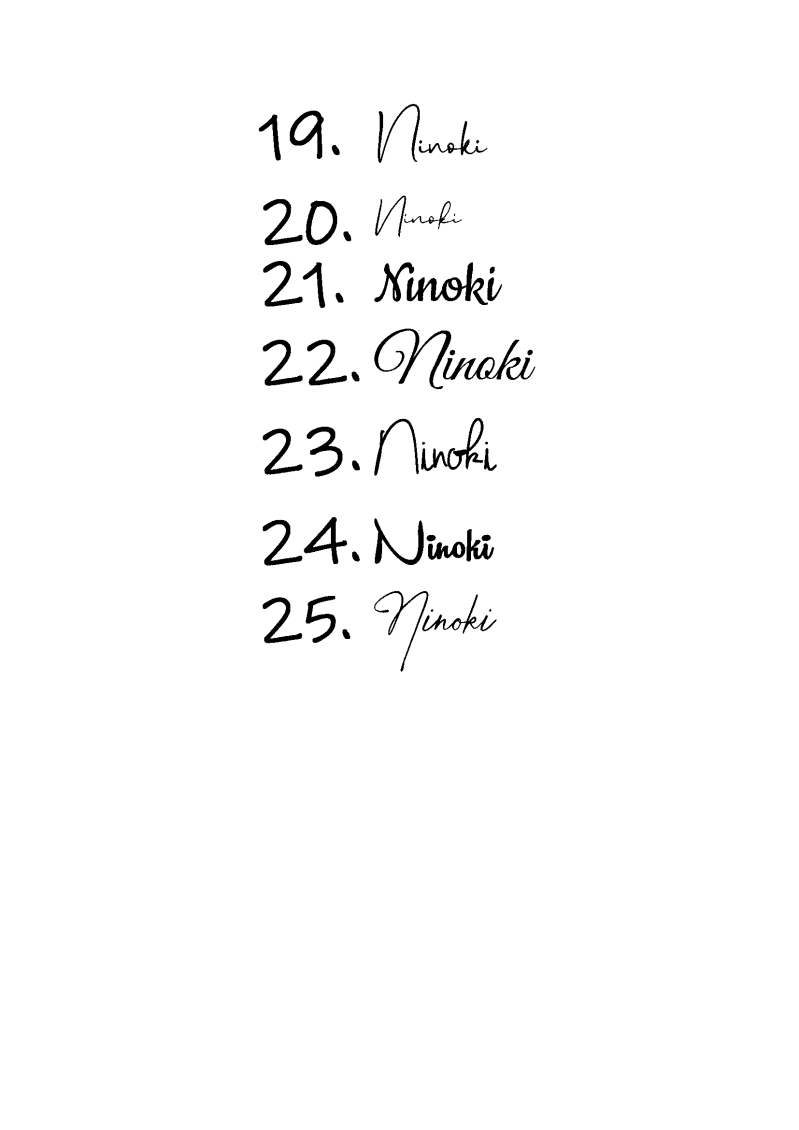 19. Ninoki
20. Ninoki
21. Ninoki
22. Ninoki
23. Ninoki
24. Ninoki
25. Ninoki